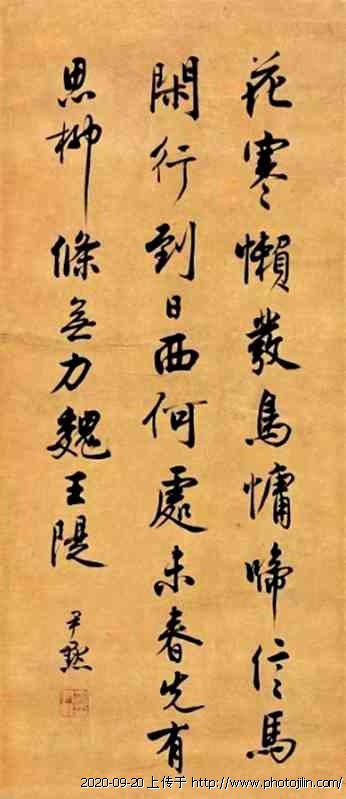 花寒懶發鳥慵啼信馬
閑行到日西何處未春先有
思柳條無力魏王隄
尹默
2020-09-20 上传于 http://www.photojilin.com/